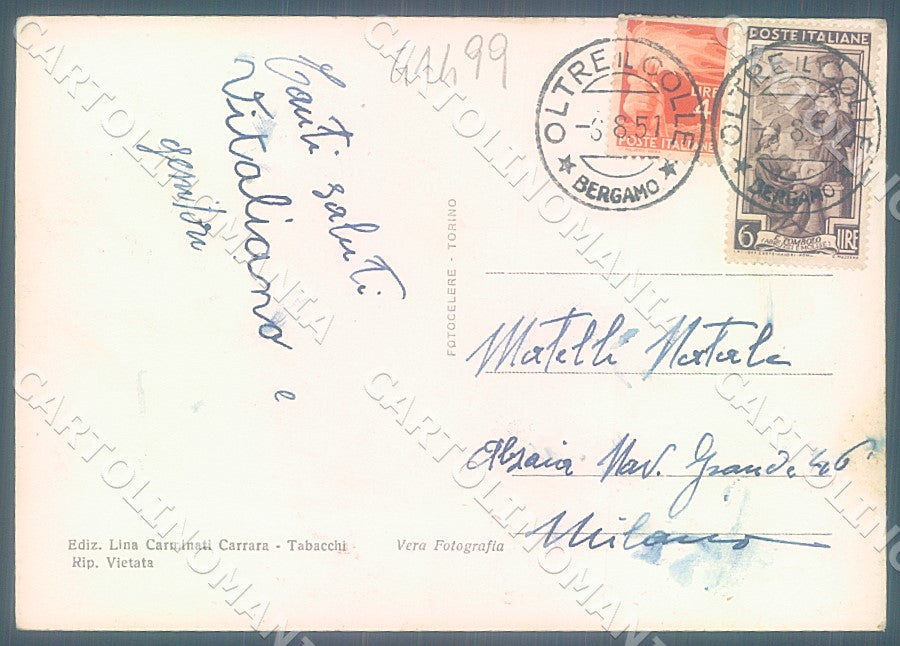 44499
Tanti saluti
Vitaliano e
genitori
FOTOCELERE - TORINO
OLTRE IL COLLE
-6.8.51
BERGAMO
LIRE
4
POSTE ITALIANE
OLTRE IL COLLE
BERGAMO
POSTE ITALIANE
6 TOMBOLO LIRE
(ABRUZZI E MOLISE)
Matelli Natale
Alzaia Nav. Grande 46
Milano
Ediz. Lina Carminati Carrara - Tabacchi
Rip. Vietata
Vera Fotografia
CARTOLINOMANIA